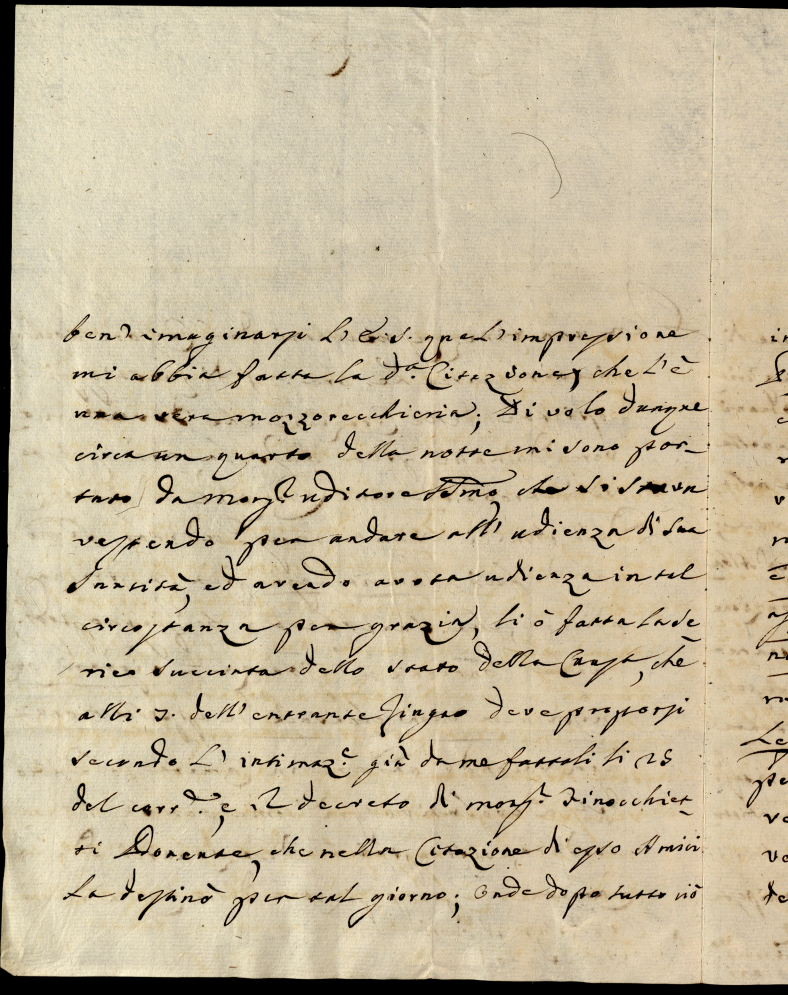 ben' imaginarsi l' E. S. qual' impressione
mi abbia fatta la d.a Citazione, che l'è
una vera mozzorecchieria; Di volo dunque
circa un quarto della notte mi sono por-
tato da mons.r uditore che si stava
vestendo per andare all' udienza di Sua
Santità, ed avendo avuta udienza in tal
circostanza per grazia, li ò fatta la se
rie succinta dello stato della Causa, chè
alli 7. dell' entrante Giugno deve proporsi
secondo l' intimaz.e già da me fattali li 25
del corr.te, e il decreto di mons.r Finocchiet-
ti Ponente, che nella Citazione di esso Amici
la destinò per tal giorno; Onde dopo tutto ciò
in